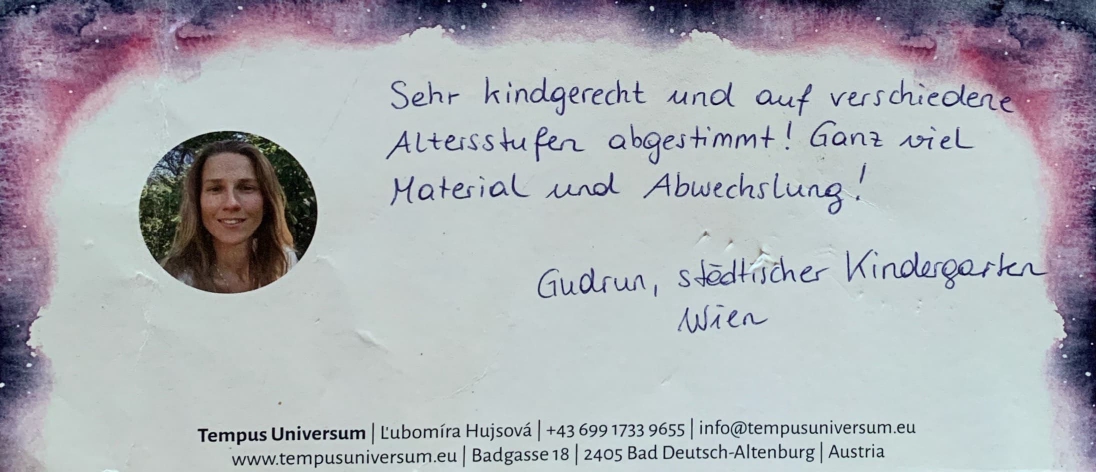 Sehr kindgerecht und auf verschiedene
Altersstufen abgestimmt! Ganz viel
Material und Abwechslung!
Gudrun, städtischer Kindergarten
Wien
Tempus Universum | Ľubomíra Hujsová | +43 699 1733 9655 | info@tempusuniversum.eu
www.tempusuniversum.eu | Badgasse 18 | 2405 Bad Deutsch-Altenburg | Austria